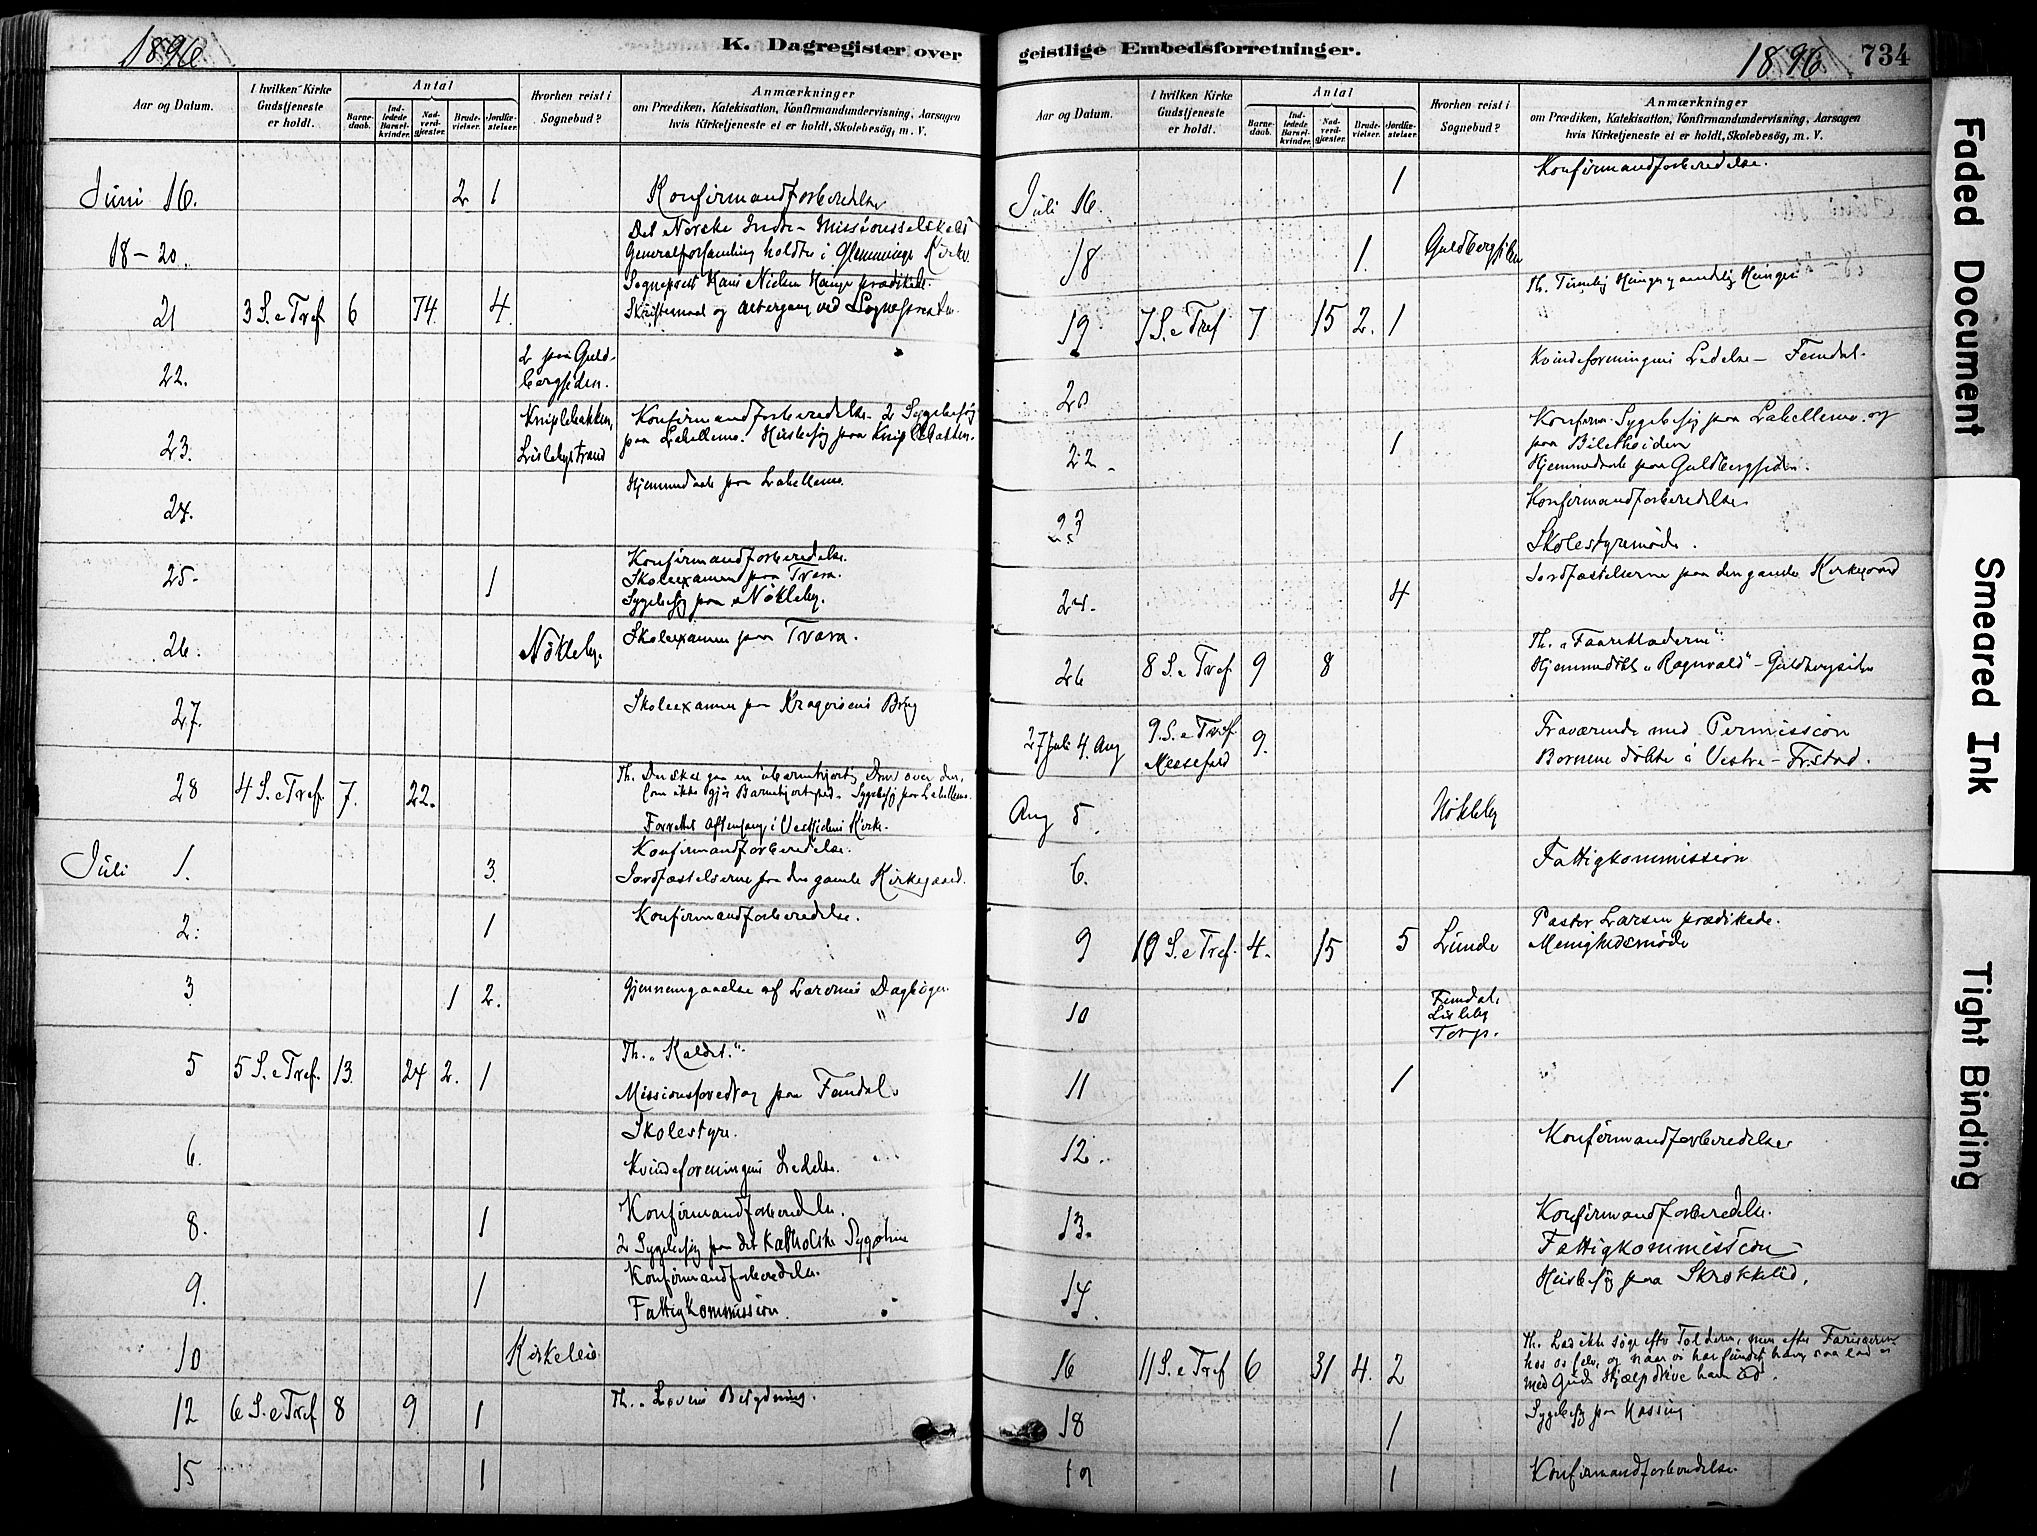 1896
K. Dagregister over
Aar og Datum.
I hvilken Kirke Gudstjeneste er holdt.
Antal
Barnedaab.
Indledede Barselkvinder.
Nadverdgjæster.
Brudevielser.
Jordfæstelser.
Hvorhen reist i Sognebud?
Anmærkninger
om Prædiken, Katekisation, Konfirmandundervisning, Aarsagen
hvis Kirketjeneste ei er holdt, Skolebesög, m. V.
Juni 16. 2 1 Konfirmandforberedelse
18-20. Det Norske Indre-Missionsselskabs
Generalforsamling holdtes i Glemminge Kirke.
Sogneprest Hans Nielsen Hauge prædikede.
21 3 S. e Tref 6 74 4. Skriftemaal og Altergang ved Sognepresten
22. 2 paa Guldbergsiden.
23. Kniplebakken, Lislebystrand Konfirmandforberedelse 2 Sygebesøg
paa Labellemo. Husbesøg paa Kniplebakken.
24. Hjemmedaab paa Labellemo.
25. 1 Konfirmandforberedelse.
Skoleexamen paa Tvara.
Sygebesøg paa Nökleby.
26. Nökleby. Skoleexamen paa Tvara.
27. Skoleexamen paa Kragerøens Brug
28 4 S. e Tref. 7. 22. Th. Der skal gaa en ubarmhjertig Dom over den,
som ikke gjør Barmhjertighed. Sygebesøg paa Labellemo.
Forrettet Aftensang i Vestsidens Kirke.
Juli 1. 3. Konfirmandforberedelse.
Jordfæstelserne paa den gamle Kirkegaard.
2. 1 Konfirmandforberedelse.
3 1 2. Gjennemgaaelse af Lærernes Dagbøger.
5 5 S. e Tref. 13. 24 2. 1 Th. "Kaldet."
Missionsforedrag paa Femdal.
6. Skolestyre.
Kvindeforeningens Ledelse.
8. 1 Konfirmandforberedelse.
2 Sygebesøg paa det katholske Sygehus
9. 1 Konfirmandforberedelse.
Fattigkommission.
10 Kirkeleie
12 6 S. e Tref 8 9 1 Th. "Lovens Betydning.
15 1
geistlige Embedsforretninger.
1896
734
Aar og Datum.
I hvilken Kirke Gudstjeneste er holdt.
Antal
Barnedaab.
Indledede Barselkvinder.
Nadverdgjæster.
Brudevielser.
Jordfæstelser.
Hvorhen reist i Sognebud?
Anmærkninger
om Prædiken, Katekisation, Konfirmandundervisning, Aarsagen
hvis Kirketjeneste ei er holdt, Skolebesög, m. V.
Juli 16. 1 Konfirmandforberedelse.
18 1. Guldbergsiden
19 7 S. e Tref 7 15 2. 1 Th. Timelig Hunger, aandelig Hunger
20 Kvindeforeningens Ledelse - Femdal.
22. 1 Konfirm. Sygebesøg paa Labellemo og
paa Biletheiden
Hjemmedaab paa Guldbergsiden.
23 Konfirmandforberedelse
Skolestyremøde.
24. 4 Jordfæstelserne paa den gamle Kirkegaard
26 8 S. e Tref 9 8 Th. "Faareklæderne".
Hjemmedøbt "Ragnvald" - Guldbergsiden
27 Juli 4. Aug 9. S. e Tref. Messefald 9. Fraværende med Permission
Børnene døbte i Vestre-Fr.stad.
Aug 5. Nökleby
6. Fattigkommission
9 10 S. e Tref. 4. 15 5 Lunde Pastor Larsen prædikede.
Menighedsmøde
10 Femdal. Lisleby Torp.
11 1
12. Konfirmandforberedelse
13. Konfirmandforberedelse.
Fattigkommission
14. Husbesøg paa Skrokkelid.
16 11 S. e Tref 6 31 4. 2 Th. Lad ikke søge efter Tolderen, men efter Farisæeren
hos os selv, og naar vi har fundet ham, saa lad os
med Guds Hjælp drive ham ud.
18 1 Sygebesøg paa
19 1 Konfirmandforberedelse
Faded Document
Smeared Ink
Tight Binding